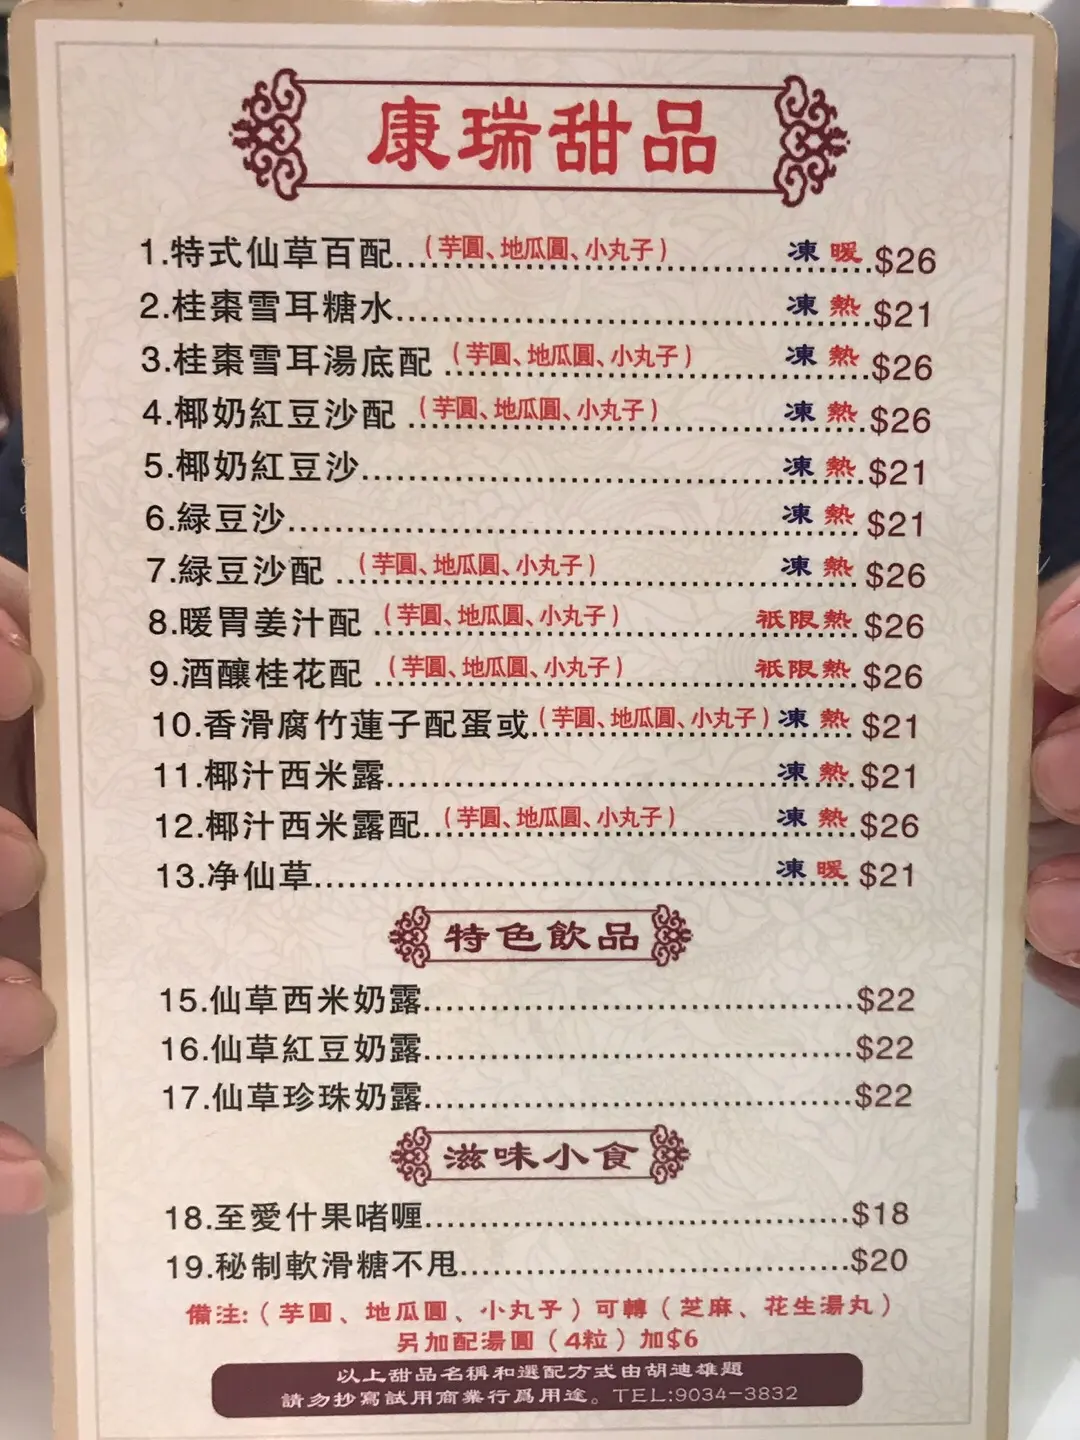 康瑞甜品
1.特式仙草百配...(芋圓、地瓜圓、小丸子) 凍 暖 $26
2.桂棗雪耳糖水... 凍 熱 $21
3.桂棗雪耳湯底配(芋圓、地瓜圓、小丸子)... 凍 熱 $26
4.椰奶紅豆沙配(芋圓、地瓜圓、小丸子)... 凍 熱 $26
5.椰奶紅豆沙... 凍 熱 $21
6.緑豆沙... 凍 熱 $21
7.緑豆沙配(芋圓、地瓜圓、小丸子)... 凍 熱 $26
8.暖胃姜汁配(芋圓、地瓜圓、小丸子)... 祇限熱 $26
9.酒釀桂花配(芋圓、地瓜圓、小丸子)... 祇限熱 $26
10.香滑腐竹蓮子配蛋或(芋圓、地瓜圓、小丸子) 凍 熱 $21
11.椰汁西米露... 凍 熱 $21
12.椰汁西米露配...(芋圓、地瓜圓、小丸子) 凍 熱 $26
13.净仙草... 凍 暖 $21
特色飲品
15.仙草西米奶露...$22
16.仙草紅豆奶露...$22
17.仙草珍珠奶露...$22
滋味小食
18.至愛什果啫喱...$18
19.秘制軟滑糖不甩...$20
備注:(芋圓、地瓜圓、小丸子)可轉(芝麻、花生湯丸)
另加配湯圓(4粒)加$6
以上甜品名稱和選配方式由胡迪雄題
請勿抄寫試用商業行爲用途。TEL:9034-3832